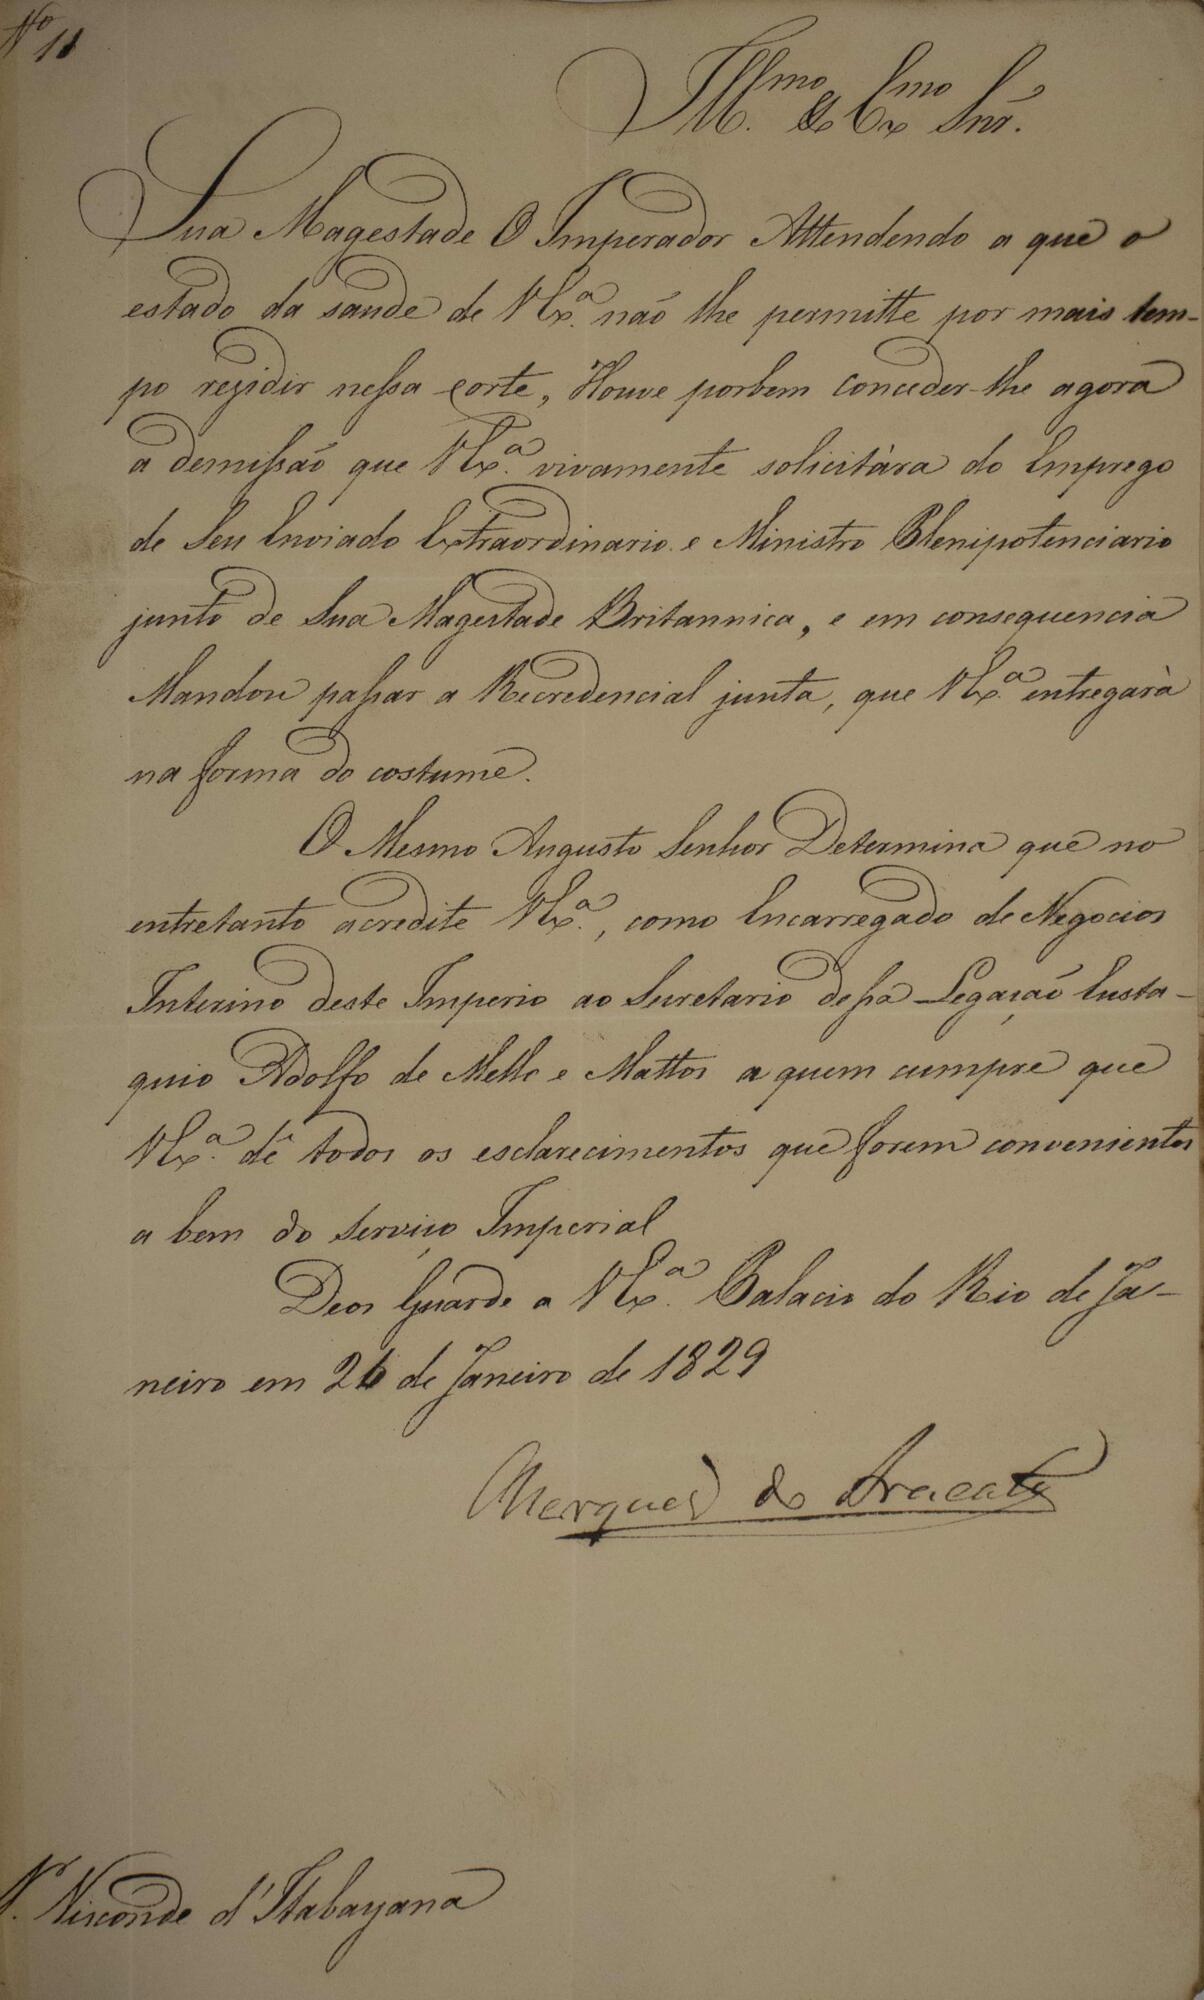 Nº 11
Illmo. & Exmo. Snr.
Sua Magestade O Imperador Attendendo a que o
estado da saude de VExª. não lhe permitte por mais tem-
po rezidir nessa Corte, Houve porbem conceder-lhe agora
a demissão que VExª. vivamente solicitàra do Emprego
de Seu Enviado Extraordinario e Ministro Plenipotenciario
junto de Sua Magestade Britannica, e em consequencia
Mandou passar a Recredencial junta, que VExª. entregarà
na forma do costume.
O Mesmo Augusto Senhor Determina que no
entretanto acredite VExª., como Encarregado de Negocios
Interino deste Imperio ao Secretario dessa Legação Eusta-
quio Adolfo de Mello e Mattos a quem cumpre que
VExª. dê todos os esclarecimentos que forem convenientes
a bem do Serviço Imperial
Deos Guarde a VExª. Palacio do Rio de Ja-
neiro em 26 de Janeiro de 1829
Marquez do Aracaty
Visconde d'Itabayana